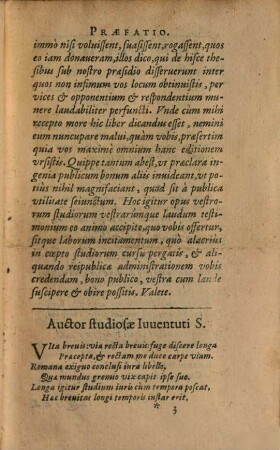 PRÆFATIO.
immò nisi voluissent, suasissent, rogassent, quos
eo iam donaueram, illos dico, qui de hisce the-
sibus sub nostro præsidio disseruerunt inter
quos non infimum vos locum obtinuistis, per
vices & opponentium & respondentium mu-
nere laudabiliter perfuncti. Vnde cùm mihi
recepto more hic liber dicandus esset, nemini
eum nuncupare malui, quàm vobis, præsertim
quia vos maximè omnium hanc editionem
vrsistis. Quippe tantum abest, vt præclara in-
genia publicum bonum aliis inuideant, vt po-
tius nihil magnifaciant, quod sit à publica
vtilitate seiunctum. Hoc igitur opus vestro-
rum studiorum vestrarúmque laudum testi-
monium eo animo accipite, quo vobis offertur,
sitque laborum incitamentum, quò alacrius
in cœpto studiorum cursu pergatis, & ali-
quando reipublicæ administrationem vobis
credendam, bono publico, vestra cum laude
suscipere & obire possitis. Valete.
Auctor studiosæ Iuuentuti S.
VIta breuis: via recta breuis: fuge discere longa
Præcepta, & rectam me duce carpe viam.
Romana exiguo conclusi iura libello,
Quæ mundus gremio vix capit ipse suo.
Longa igitur studium iuris cùm tempora poscat,
Hæc breuitas longi temporis instar erit.
* 3